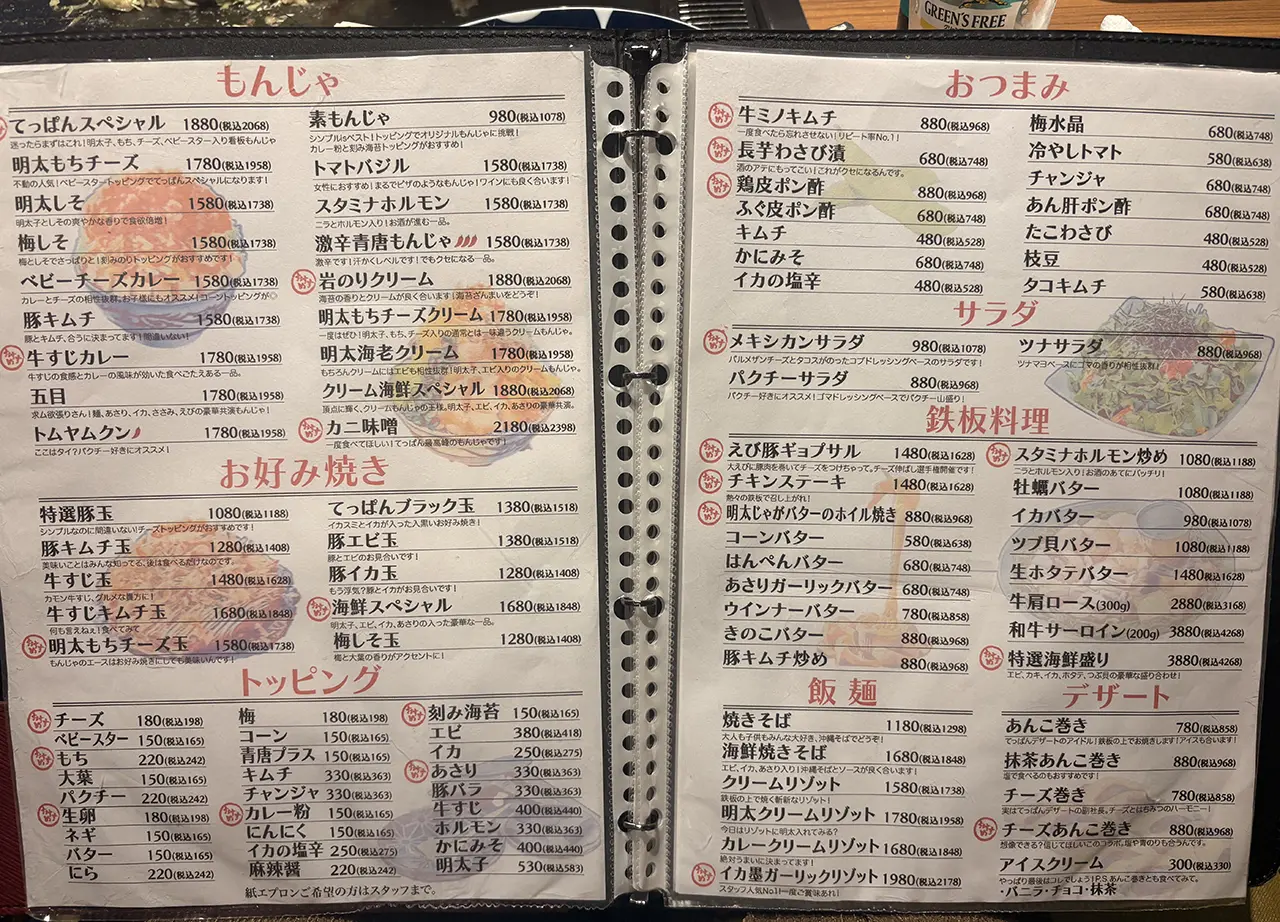 GREEN'S FREE
もんじゃ
てっぱんスペシャル 1880(税込2068)
迷ったらまずはこれ!明太子、もち、チーズ、ベビースター入り看板もんじゃ
明太もちチーズ 1780(税込1958)
不動の人気!ベビースタートッピングでてっぱんスペシャルになります!
明太しそ 1580(税込1738)
明太子としその爽やかな香りで食欲倍増!
梅しそ 1580(税込1738)
梅としそでさっぱりと!刻みのりトッピングがおすすめです!
ベビーチーズカレー 1580(税込1738)
カレーとチーズの相性抜群。お子様にもオススメ!コーントッピングが◎
豚キムチ 1580(税込1738)
豚とキムチ、合うに決まってます!間違いない!
おすすめ 牛すじカレー 1780(税込1958)
牛すじの食感とカレーの風味が効いた食べごたえある一品。
五目 1780(税込1958)
求ム欲張りさん!麺、あさり、イカ、ささみ、えびの豪華共演もんじゃ!
トムヤムクン 1780(税込1958)
ここはタイ?パクチー好きにオススメ!
素もんじゃ 980(税込1078)
シンプルisベスト!トッピングでオリジナルもんじゃに挑戦!
カレー粉と刻み海苔トッピングがおすすめ!
トマトバジル 1580(税込1738)
女性におすすめ!まるでピザのようなもんじゃ!ワインにも良く合います!
スタミナホルモン 1580(税込1738)
ニラとホルモン入り!お酒が進む一品。
激辛青唐もんじゃ 1580(税込1738)
激辛です!汗かくレベルです!でもクセになる一品。
おすすめ 岩のりクリーム 1880(税込2068)
海苔の香りとクリームが良く合います!海苔ざんまいをどうぞ!
明太もちチーズクリーム 1780(税込1958)
一度はぜひ!明太子、もち、チーズ入りの通常とは一味違うクリームもんじゃ。
明太海老クリーム 1780(税込1958)
もちろんクリームにはエビも相性抜群!明太子、エビ入りのクリームもんじゃ。
クリーム海鮮スペシャル 1880(税込2068)
頂点に輝く、クリームもんじゃの王様。明太子、エビ、イカ、あさりの豪華共演。
おすすめ カニ味噌 2180(税込2398)
一度食べてほしい!てっぱん最高峰のもんじゃです!
お好み焼き
特選豚玉 1080(税込1188)
シンプルなのに間違いない!チーズトッピングがおすすめです!
豚キムチ玉 1280(税込1408)
美味いことはみんな知ってる、後は食べるだけなのです。
牛すじ玉 1480(税込1628)
カモン牛すじ、グルメな貴方に!
牛すじキムチ玉 1680(税込1848)
何も言えねぇ!食べてみて
おすすめ 明太もちチーズ玉 1580(税込1738)
もんじゃのエースはお好み焼きにしても美味いんです!
てっぱんブラック玉 1380(税込1518)
イカスミとイカが入った入黒いお好み焼き!
豚エビ玉 1380(税込1518)
豚とエビのお見合いです!
豚イカ玉 1280(税込1408)
もう浮気?豚とイカがお見合いです!
おすすめ 海鮮スペシャル 1680(税込1848)
明太子、エビ、イカ、あさりの入った豪華な一品。
梅しそ玉 1280(税込1408)
梅と大葉の香りがアクセントに!
トッピング
おすすめ チーズ 180(税込198)
ベビースター 150(税込165)
おすすめ もち 220(税込242)
大葉 150(税込165)
パクチー 220(税込242)
おすすめ 生卵 180(税込198)
ネギ 150(税込165)
バター 150(税込165)
にら 220(税込242)
梅 180(税込198)
コーン 150(税込165)
青唐プラス 150(税込165)
キムチ 330(税込363)
チャンジャ 330(税込363)
おすすめ カレー粉 150(税込165)
にんにく 150(税込165)
イカの塩辛 250(税込275)
麻辣醤 220(税込242)
おすすめ 刻み海苔 150(税込165)
エビ 380(税込418)
イカ 250(税込275)
おすすめ あさり 330(税込363)
豚バラ 330(税込363)
牛すじ 400(税込440)
ホルモン 330(税込363)
かにみそ 400(税込440)
明太子 530(税込583)
紙エプロンご希望の方はスタッフまで。
おつまみ
おすすめ 牛ミノキムチ 880(税込968)
一度食べたら忘れさせない!リピート率No.1!
おすすめ 長芋わさび漬 680(税込748)
酒のアテにもってこい!これがクセになるんです。
おすすめ 鶏皮ポン酢 880(税込968)
ふぐ皮ポン酢 680(税込748)
キムチ 480(税込528)
かにみそ 680(税込748)
イカの塩辛 480(税込528)
梅水晶 680(税込748)
冷やしトマト 580(税込638)
チャンジャ 680(税込748)
あん肝ポン酢 680(税込748)
たこわさび 480(税込528)
枝豆 480(税込528)
タコキムチ 580(税込638)
サラダ
おすすめ メキシカンサラダ 980(税込1078)
パルメザンチーズとタコスがのったコブドレッシングベースのサラダです!
パクチーサラダ 880(税込968)
パクチー好きにオススメ!ゴマドレッシングベースでパクチー山盛り!
ツナサラダ 880(税込968)
ツナマヨベースにゴマの香りが相性抜群!
鉄板料理
おすすめ えび豚ギョプサル 1480(税込1628)
大えびに豚肉を巻いてチーズをつけちゃって。チーズ伸ばし選手権開催です!
おすすめ チキンステーキ 1480(税込1628)
熱々の鉄板で召し上がれ!
おすすめ 明太じゃがバターのホイル焼き 880(税込968)
コーンバター 580(税込638)
はんぺんバター 680(税込748)
あさりガーリックバター 680(税込748)
ウインナーバター 780(税込858)
きのこバター 880(税込968)
豚キムチ炒め 880(税込968)
おすすめ スタミナホルモン炒め 1080(税込1188)
ニラとホルモン入り!お酒のあてにバッチリ!
牡蠣バター 1080(税込1188)
イカバター 980(税込1078)
ツブ貝バター 1080(税込1188)
生ホタテバター 1480(税込1628)
牛肩ロース(300g) 2880(税込3168)
和牛サーロイン(200g) 3880(税込4268)
おすすめ 特選海鮮盛り 3880(税込4268)
エビ、カキ、イカ、ホタテ、つぶ貝の豪華な盛り合わせ!
飯麺
焼きそば 1180(税込1298)
大人も子供もみんな大好き、沖縄そばでどうぞ!
海鮮焼きそば 1680(税込1848)
エビ、イカ、あさり入り!沖縄そばとソースが良く合います!
クリームリゾット 1580(税込1738)
鉄板の上で焼く斬新なリゾット!
明太クリームリゾット 1780(税込1958)
今日はリゾットに明太入れてみる?
カレークリームリゾット 1680(税込1848)
絶対うまいに決まってます!
おすすめ イカ墨ガーリックリゾット 1980(税込2178)
スタッフ人気No.1!一度ご賞味あれ!
デザート
あんこ巻き 780(税込858)
てっぱんデザートのアイドル!鉄板の上でお焼きします!アイスも合います!
抹茶あんこ巻き 880(税込968)
塩で食べるのもおすすめです!
チーズ巻き 780(税込858)
実はてっぱんデザートの副社長。チーズとはちみつのハーモニー!
おすすめ チーズあんこ巻き 880(税込968)
想像できる?信じてほしいこのコラボ。塩や青のりも合うんです。
アイスクリーム 300(税込330)
やっぱり最後はコレでしょう!P.S.あんこ巻きとも食べてみて。
・バニラ・チョコ・抹茶